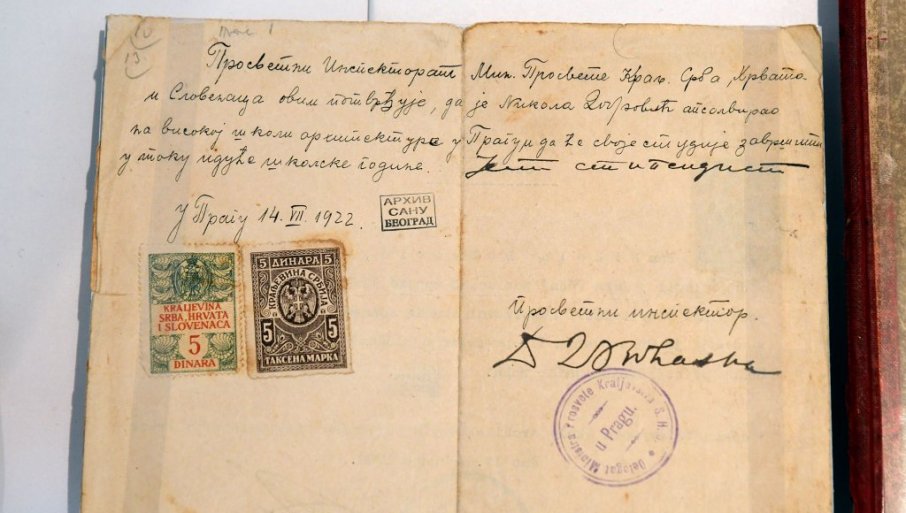 Просветни Инспекторат Мин. Просвете Краљ. Срба, Хрвата
и Словенаца овим потврђује, да је Никола Добровић апсолвирао
на високој школи архитектуре у Прагу и да ће своје студије завршити
у току идуће школске године.
У Прагу 14. VII. 1922.
АРХИВ
САНУ
БЕОГРАД
KRALJEVINA
SRBA, HRVATA
I SLOVENACA
5
DINARA
5 ДИНАРА 5
КРАЉЕВИНА СРБИЈА
5 5
ТАКСЕНА МАРКА
Просветни инспектор.
Delegat Ministra Prosvete Kraljevine S.H.S.
u Pragu.